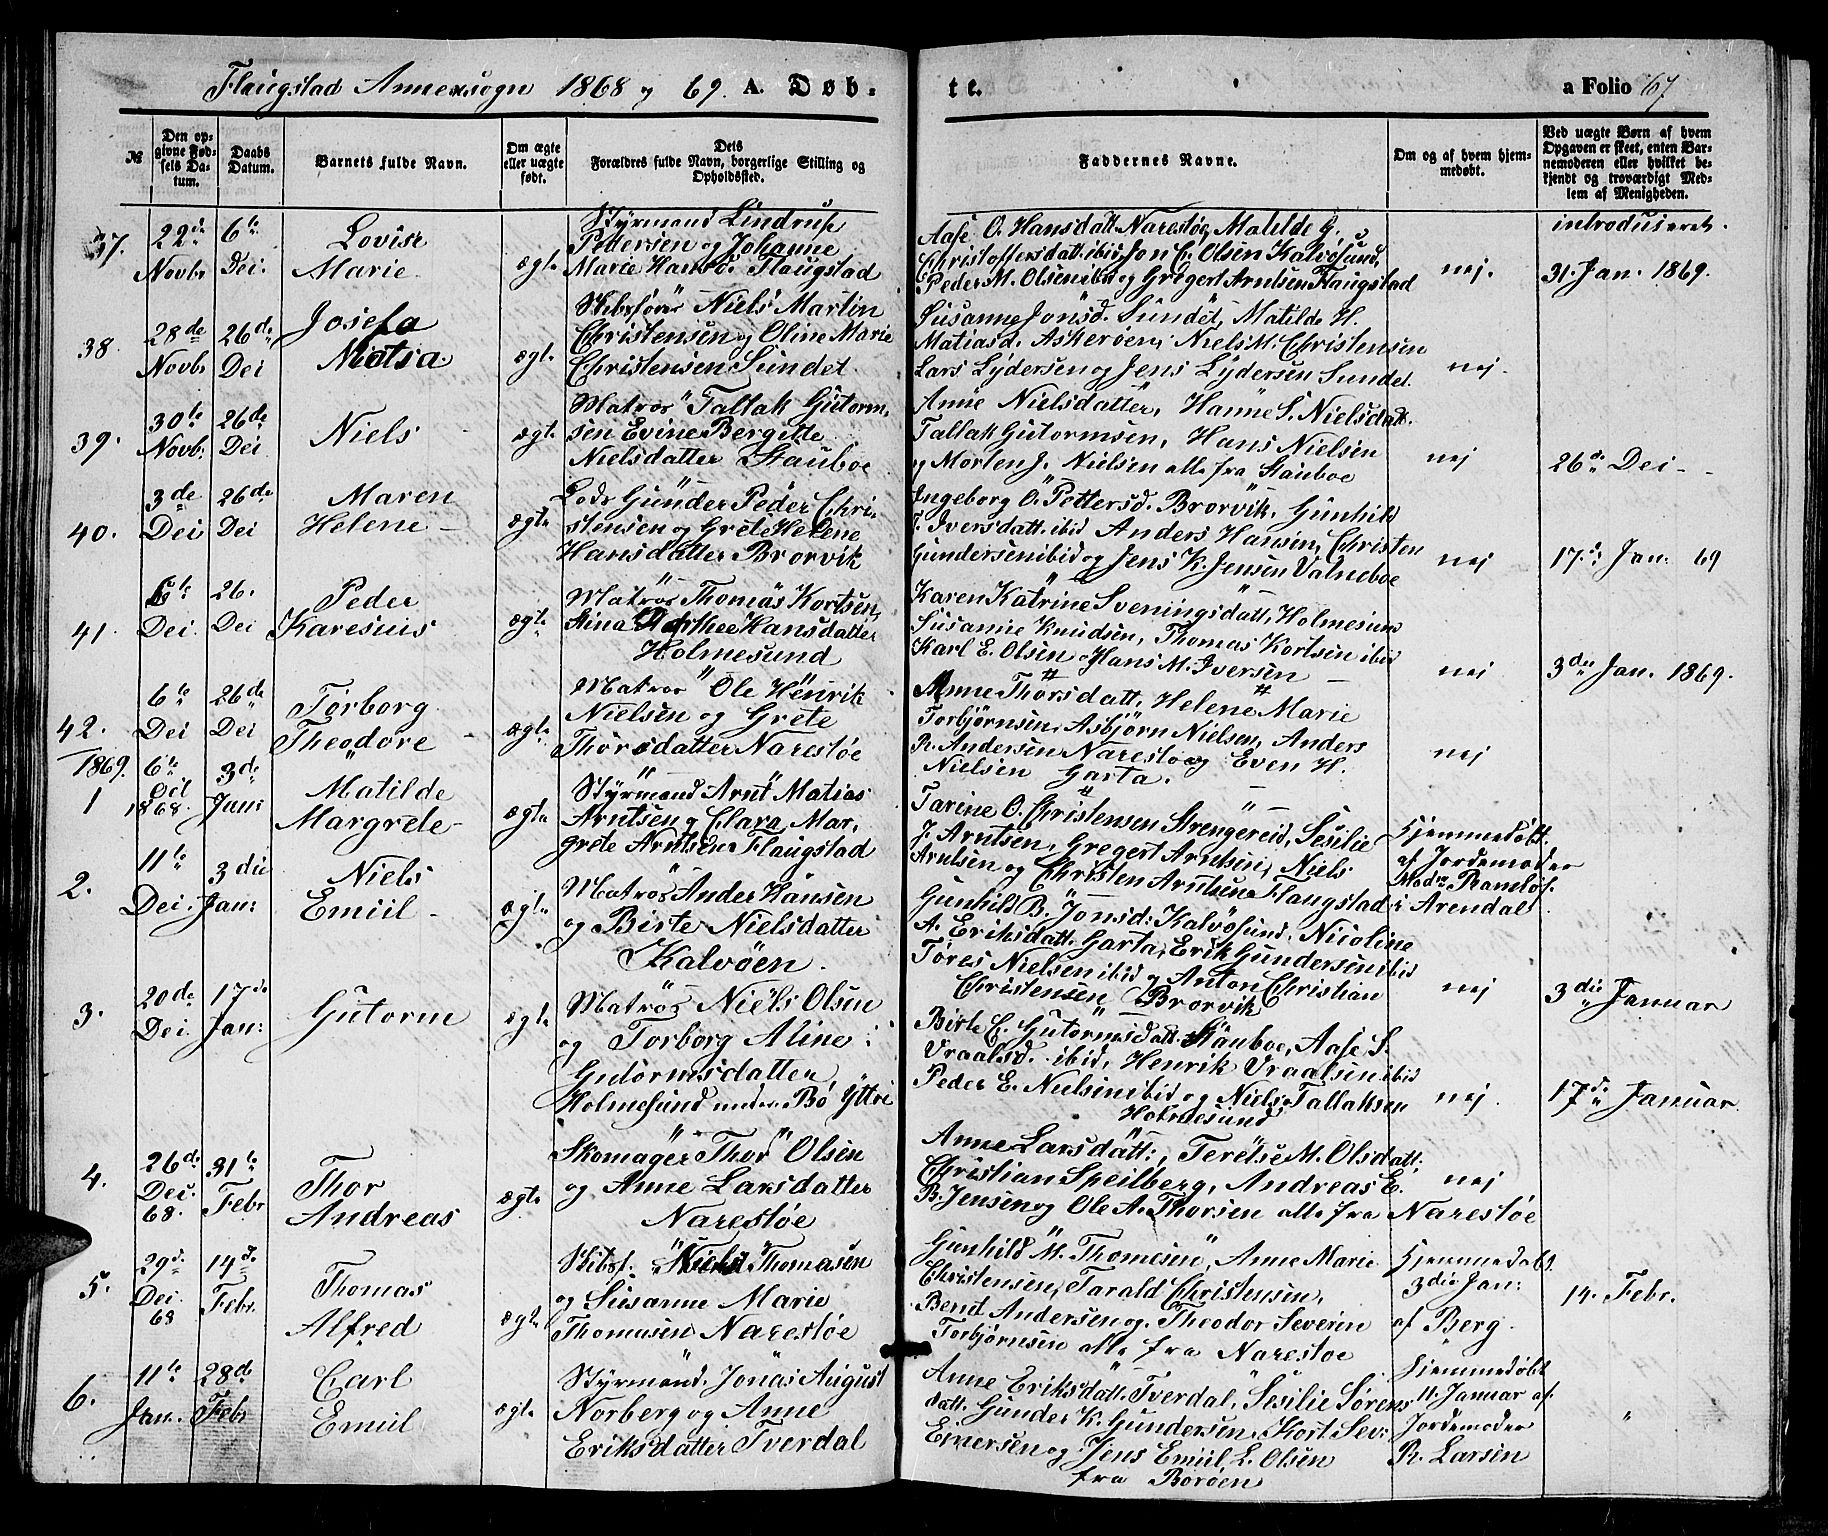 Flaugstad Annexsogn 1868 og 69. A. Døb-
te.
a Folio 67
№
Den op-
givne Fød-
sels Da-
tum.
Daabs
Datum.
Barnets fulde Navn.
Om ægte
eller uægte
født.
Dets
Forældres fulde Navn, borgerlige Stilling og
Opholdssted.
Faddernes Navne.
Om og af hvem hjem-
medøbt.
Ved uægte Børn af hvem
Opgaven er skeet, enten Bar-
nemoderen eller hvilket be-
kjendt og troværdigt Med-
lem af Menigheden.
37.
22de
Novbr
6te
Dei.
Lovise
Marie
ægt.
Styrmand Lindrup
Pedersen og Johanne
Marie Hansd. Flaugstad
Aase O. Hansdatt Narestø, Matilde G.
Christoffersdatt. ibid Jon C. Olsen Kalvøsund,
Peder M. Olsen ibid og Gregert Arntsen Flaugstad
nej.
introduseret.
31. Jan. 1869.
38.
28de
Novbr
26de
Dei
Josefa
Matsa.
ægt.
Skibsfører Niels Martin
Christensen og Oline Marie
Christensen Sundet.
Susanne Jonsd. Sundet, Matilde H.
Matiasd. Askerøen, Niels M. Christensen
Lars Lydersen og Jens Lydersen Sundet.
nej.
39.
30te
Novb.
26de
Dei
Niels
ægt.
Matros Tallak Gutorm-
sen Evine Bergitte
Nielsdatter Stauboe
Anne Nielsdatter, Hanne S. Nielsdatt.
Tallak Gutormsen, Hans Nielsen
og Morten J. Nielsen alle fra Stauboe
nej
26de Dei -
40.
3de
Dei
26de
Dei
Maren
Helene
ægt.
Lods Gunder Peder Chri-
stensen og Grete Helene
Hansdatter Brorvik
Ingeborg O. Pettersd. Brorvik, Gunhild
T. Iversdatt. ibid Anders Hansen, Christen
Gundersen ibid og Jens K. Jensen Valneboe
nej
17de Jan: 69
41.
6te
Dei
26.
Dei
Peder
Karesius
ægt.
Matros Thomas Kortsen,
Stina Dorthee Hansdatter
Holmesund
Karen Katrine Sveningsdatt, Holmesund
Susanne Knudsen, Thomas Kortsen ibid
Karl E. Olsen, Hans M. Iversen
nej
3die Jan. 1869.
42.
6te
Dei
26de
Dei
Torborg
Theodore
ægt.
Matros Ole Henrik
Nielsen og Grete
Thorsdatter Narestøe
Anne Thorsdatt, Helene Marie
Torbjørnsen, Asbjørn Nielsen, Anders
R. Andersen Narestø og Even H.
Nielsen Garta.
nej
1869.
1
6te
Dei
1868.
3de
Jan:
Matilde
Margrete
ægt.
Styrmand Arnt Matias
Arntsen og Clara Mar-
grete Arntsen Flaugstad
Tarine O. Christensen Strengereid, Sesilie
J. Arntsen, Gregert Arntsen, Niels
Arntsen og Christen Arntsen Flaugstad
Hjemmedøbt
af Jordemoder
Madm Ramløf
i Arendal
2.
11te
Dei.
3die
Jan:
Niels
Emiil
ægt.
Matros Ander Hansen
og Birte Nielsdatter
Kalvøen.
Gunhild B. Jonsd: Kalvøsund, Nicoline
A. Eriksdatt. Garta, Erik Gundersen ibid
Tores Nielsen ibid og Anton Christian
Christensen Brorvik
nej
3die Januar
3.
20de
Dei.
17de
Jan:
Gutorm
ægt.
Matros Niels Olsen
og Torborg Aline
Gutormsdatter
Holmesund under Bø Yttre
Birte C. Gutormsdatt. Stauboe, Aase S.
Vraalsd. ibid, Henrik Vraalsen ibid
Peder E. Nielsen ibid og Niels Tallaksen
Holmesund
nej.
17de Januar
4.
26de
Dei.
68.
31te
Febr
Thor
Andreas
ægt.
Skomager Thor Olsen
og Anne Larsdatter
Narestøe
Anne Larsdatt:, Terese M. Olsdatt,
Christian Speilberg, Andreas E.
B. Jensen og Ole A. Thorsen alle fra Narestøe
nej
5.
29de
Dei.
68
14de
Febr.
Thomas
Alfred
ægt.
Skibsf. Niels Thomasen
og Susanne Marie
Thomasen Narestøe
Gunhild M. Thomesen, Anne Marie
Christensen, Tarald Christensen,
Bend Andersen og Theodor Severin
Torbjørnsen alle fra Narestoe
Hjemmedøbt
3die Jan:
af Berg.
14. Febr.
6.
11te
Jan.
28de
Febr
Carl
Emiil
ægt.
Styrmand. Jonas August
Norberg og Anne
Eriksdatter Tverdal
Anne Eriksdatt. Tverdal, Sesilie Sørens-
datt. Gunder K. Gundersen, Kort Sev.
Emersen og Jens Emiil L. Olsen
fra Borøen
Hjemmedøbt
11. Januar af
Jordemoder
R. Larsen
"